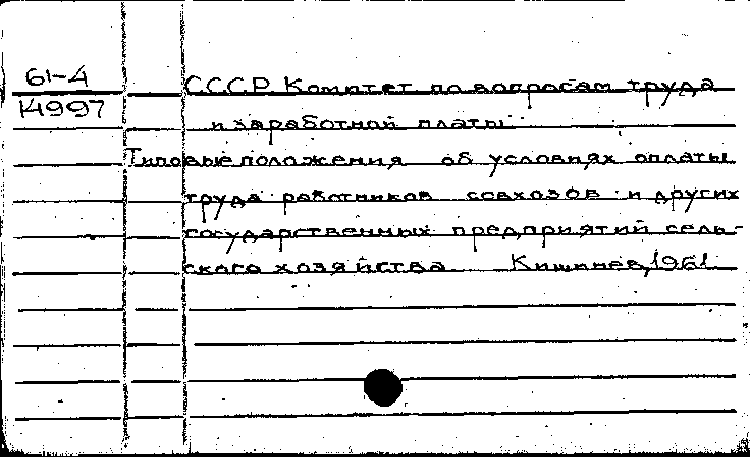 61-4
14997
СССР Комитет по вопросам труда
и заработной платы
Типовые положения об условиях оплаты
труда работников совхозов и других
государственных предприятий сель-
ского хозяйства Кишинев, 1961